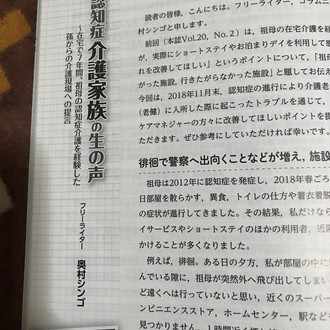 認知症介護家族の生の声
~在宅で7年間、祖母の認知症介護を経験した
孫からの介護現場への提言
フリーライター 奥村シンゴ
読者の皆様、こんにちは。フリーライター、コラムニ
村シンゴと申します。
前回（本誌Vol.20、No.2）は、祖母の在宅介護を経
が、実際にショートステイやお泊まりデイを利用して
れを改善してほしい」というポイントについて、「祖母
がった施設、行きたがらなかった施設」と題してお伝え
今回は、2018年11月末、認知症の進行により介護老
（老健）に入所した際に起こったトラブルを通じて、
ケアマネジャーの方々に改善してほしいポイントを提
だきます。ぜひ参考にしていただければ幸いです。
徘徊で警察へ出向くことなどが増え，施設
祖母は2012年に認知症を発症し、2018年春ごろ
日部屋を散らかす、異食、トイレの仕方や着衣着脱
の症状が進行してきました。その結果、私だけなら
イサービスやショートステイのほかの利用者、近隣
かけることが多くなりました。
例えば、徘徊。ある日の夕方、私が部屋の中に
んでいる隙に、祖母が突然外へ飛び出してしまい
ど遠くへは行っていないと思い、近くのスーパー
ンビニエンスストア、ホームセンター、駅など
見つかりません。